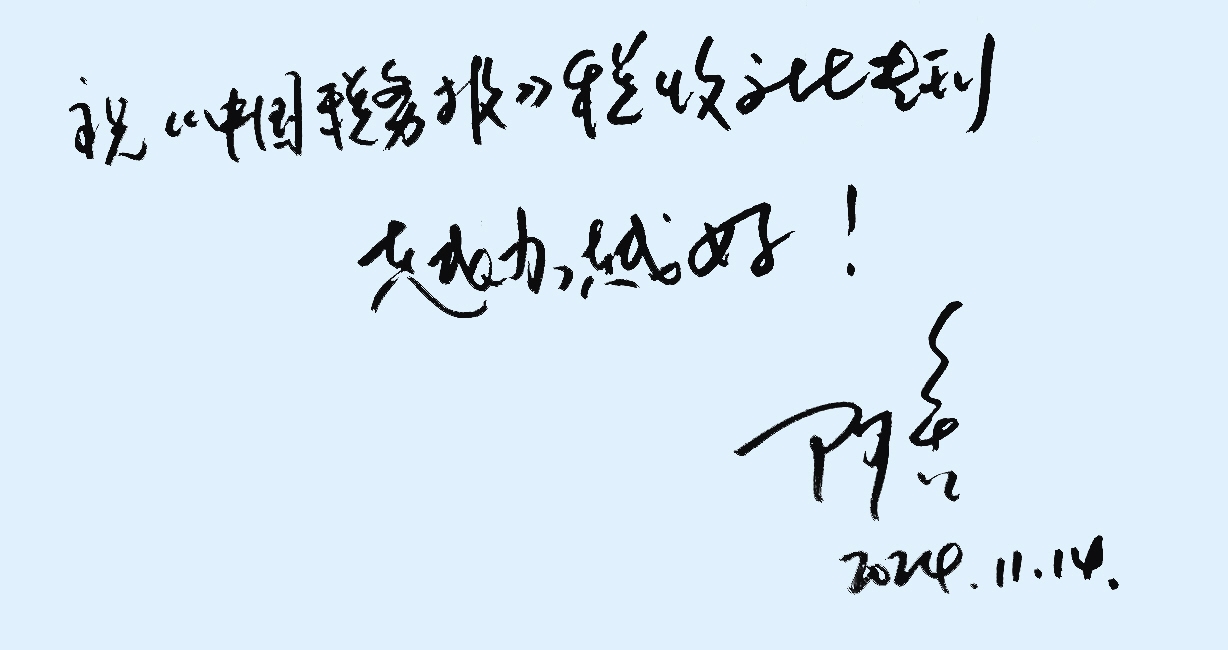 祝《中国税务报》税收文化专刊
越办越好！
2024.11.14.